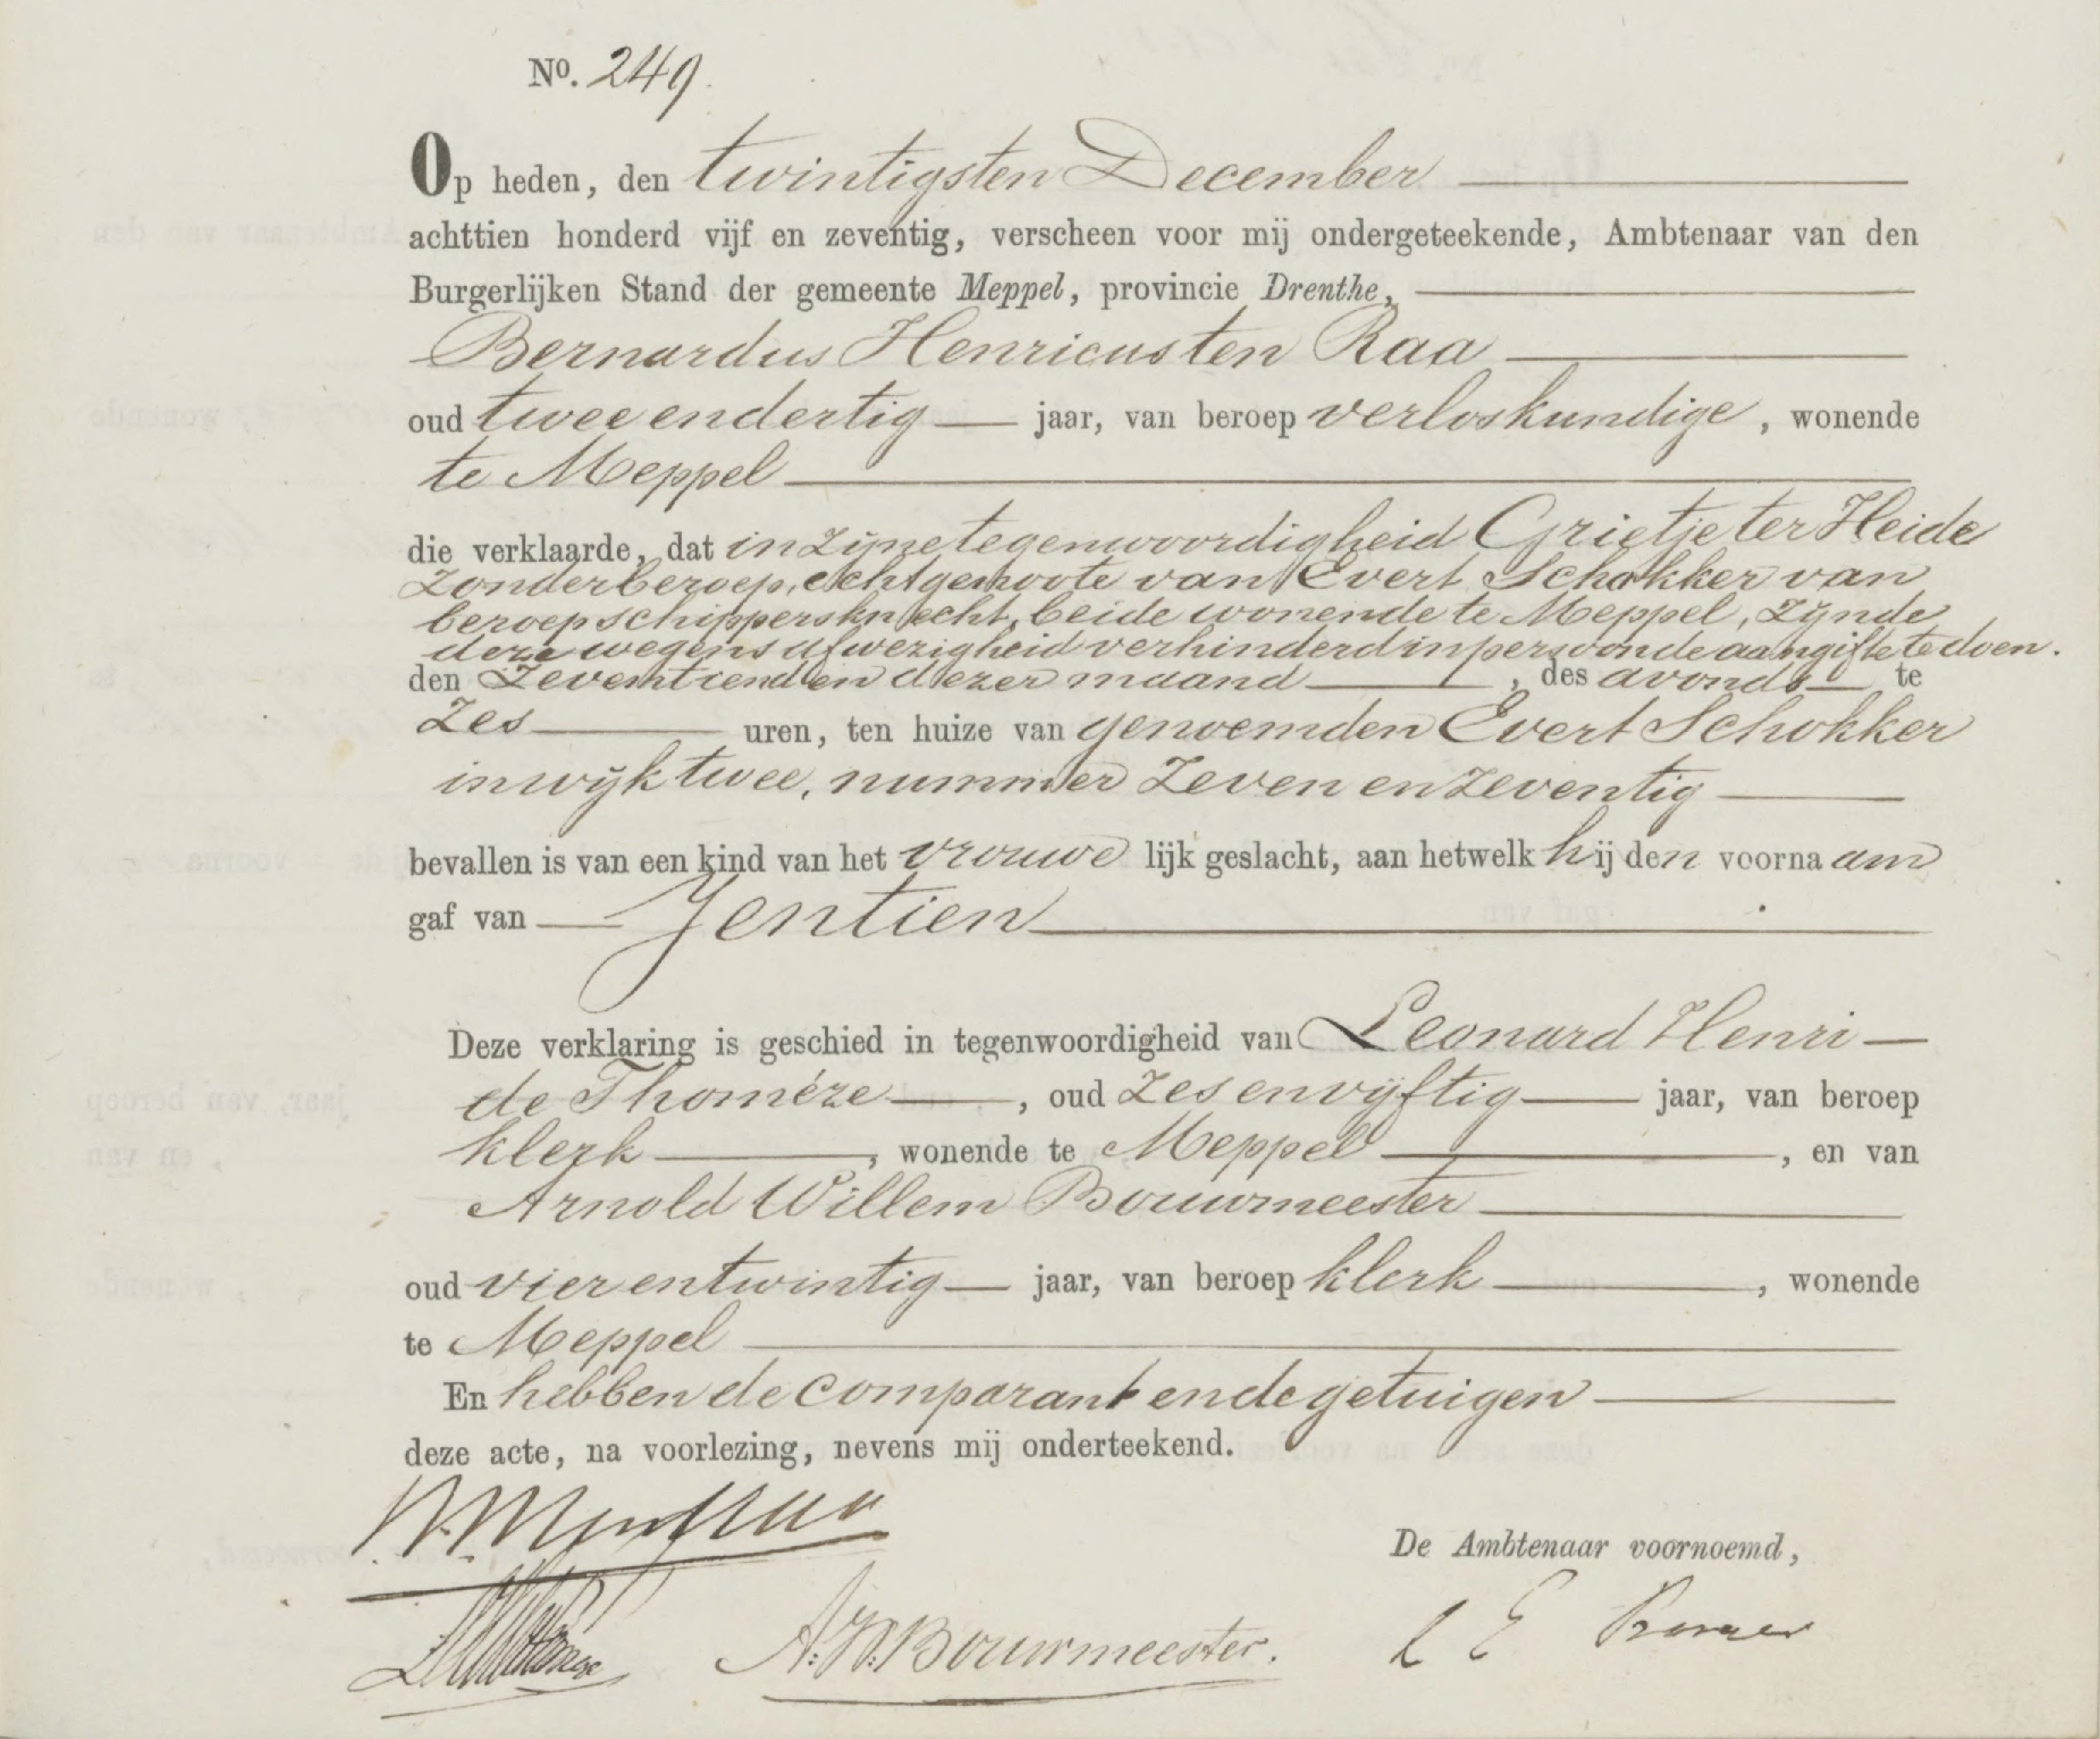 No. 249.
Op heden, den twintigsten December
achttien honderd vijf en zeventig, verscheen voor mij ondergeteekende, Ambtenaar van den
Burgerlijken Stand der gemeente Meppel, provincie Drenthe,
Bernardus Henricus ten Raa
oud twee en dertig jaar, van beroep verloskundige, wonende
te Meppel
die verklaarde, dat in zijne tegenwoordigheid Grietje ter Heide
zonder beroep, echtgenoote van Evert Schokker van
beroep schippersknecht, beide wonende te Meppel, zijnde
deze wegens afwezigheid verhinderd in persoon de aangifte te doen.
den Zeventienden dezer maand, des avonds te
Zes uren, ten huize van genoemden Evert Schokker
in wijk twee, nummer Zeven en zeventig
bevallen is van een kind van het vrouwelijk geslacht, aan hetwelk hij den voornaam
gaf van Jentien
Deze verklaring is geschied in tegenwoordigheid van Leonard Henri
de Thomèze, oud Zes en vijftig jaar, van beroep
klerk, wonende te Meppel, en van
Arnold Willem Bouwmeester
oud vier en twintig jaar, van beroep klerk, wonende
te Meppel
En hebben de comparant en de getuigen
deze acte, na voorlezing, nevens mij onderteekend.
De Ambtenaar voornoemd,
A: W: Bouwmeester.